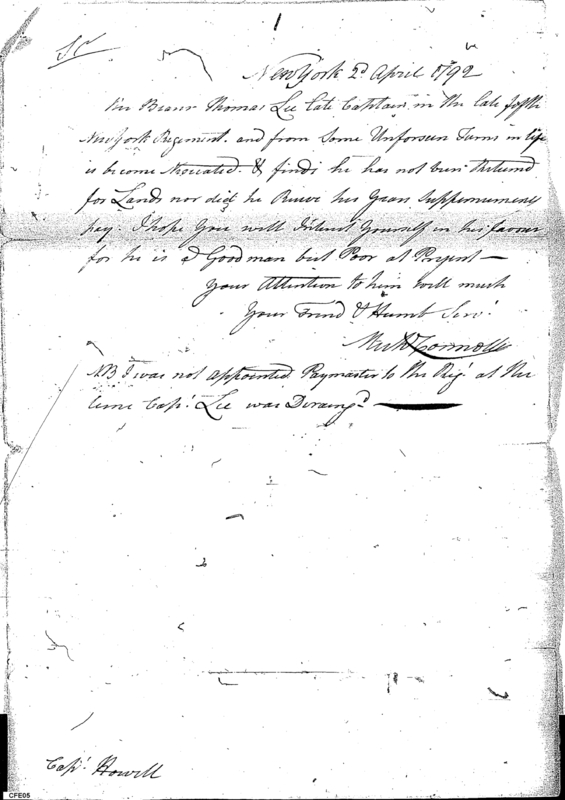 Sir
New York 2d April 1792
The Bearer Thomas Lee late Captain in the late fifth
New York Regiment. and from Some Unforseen Turns in life
is become & finds he has not been Returned
for Lands nor did he Receive his Years Suppernumery
pay. I hope you will Intrest Yourself in his favour
for he is a Good man but Poor at Present —
Your Attention to him will much
Your Friend & Humb Serv.t
Connolly
NB I was not appointed Paymaster to the Reg.t at the
time Cap.t Lee was Derang.d
Cap.t Howell
CFE05